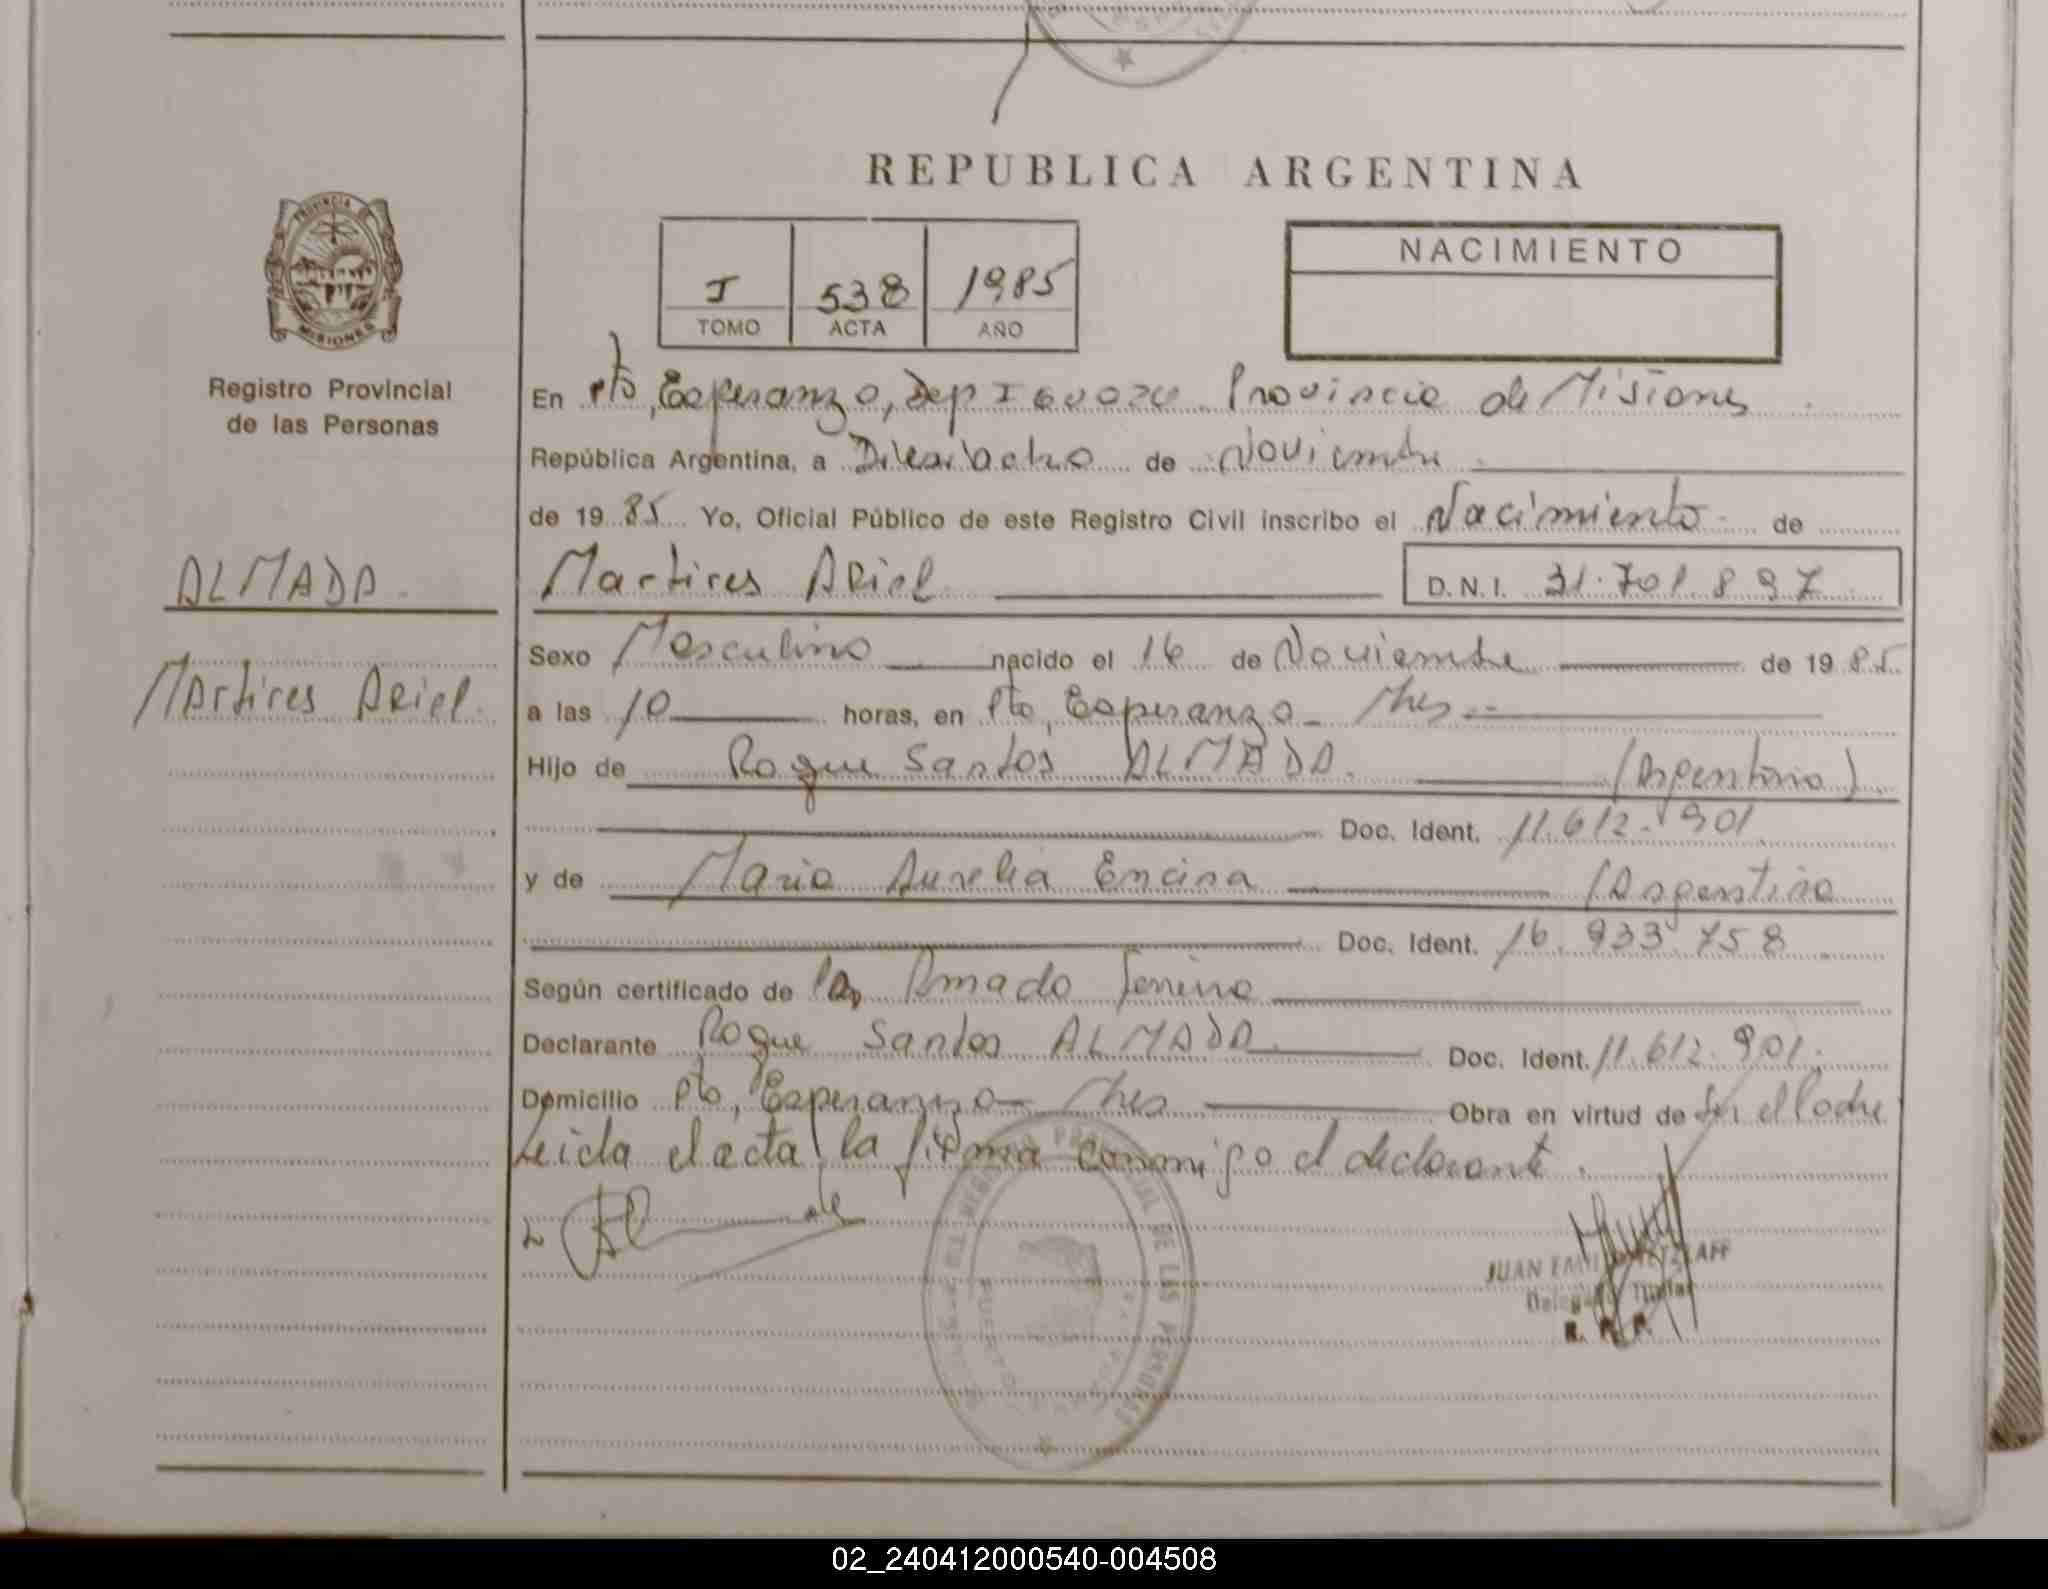 REPUBLICA ARGENTINA
PROVINCIA DE
MISIONES
Registro Provincial
de las Personas
I 538 1985
TOMO ACTA AÑO
NACIMIENTO
En Pto, Esperanza, Dep Iguazu Provincia de Misiones
República Argentina, a Dieciocho de Noviembre
de 1985 Yo, Oficial Público de este Registro Civil inscribo el Nacimiento de
ALMADA
Martires Ariel D.N.I. 31.701.897
Sexo Masculino nacido el 16 de Noviembre de 1985
Martires Ariel
a las 10 horas, en Pto, Esperanza - Mnes
Hijo de Roque Santos ALMADA. (Argentino)
Doc. Ident. 11.612.901
y de Maria Aurelia Encina (Argentina
Doc. Ident. 16.933.758
Según certificado de Amado
Declarante Roque Santos ALMADA Doc. Ident. 11.612.901
Domicilio Pto, Esperanza - Mnes Obra en virtud de Ser el Padre
Leida el acta, la firma conmigo el declarante.
REGISTRO PROVINCIAL DE LAS PERSONAS
PUERTO
JUAN
Delegado Titular
R. P. P.
02_240412000540-004508